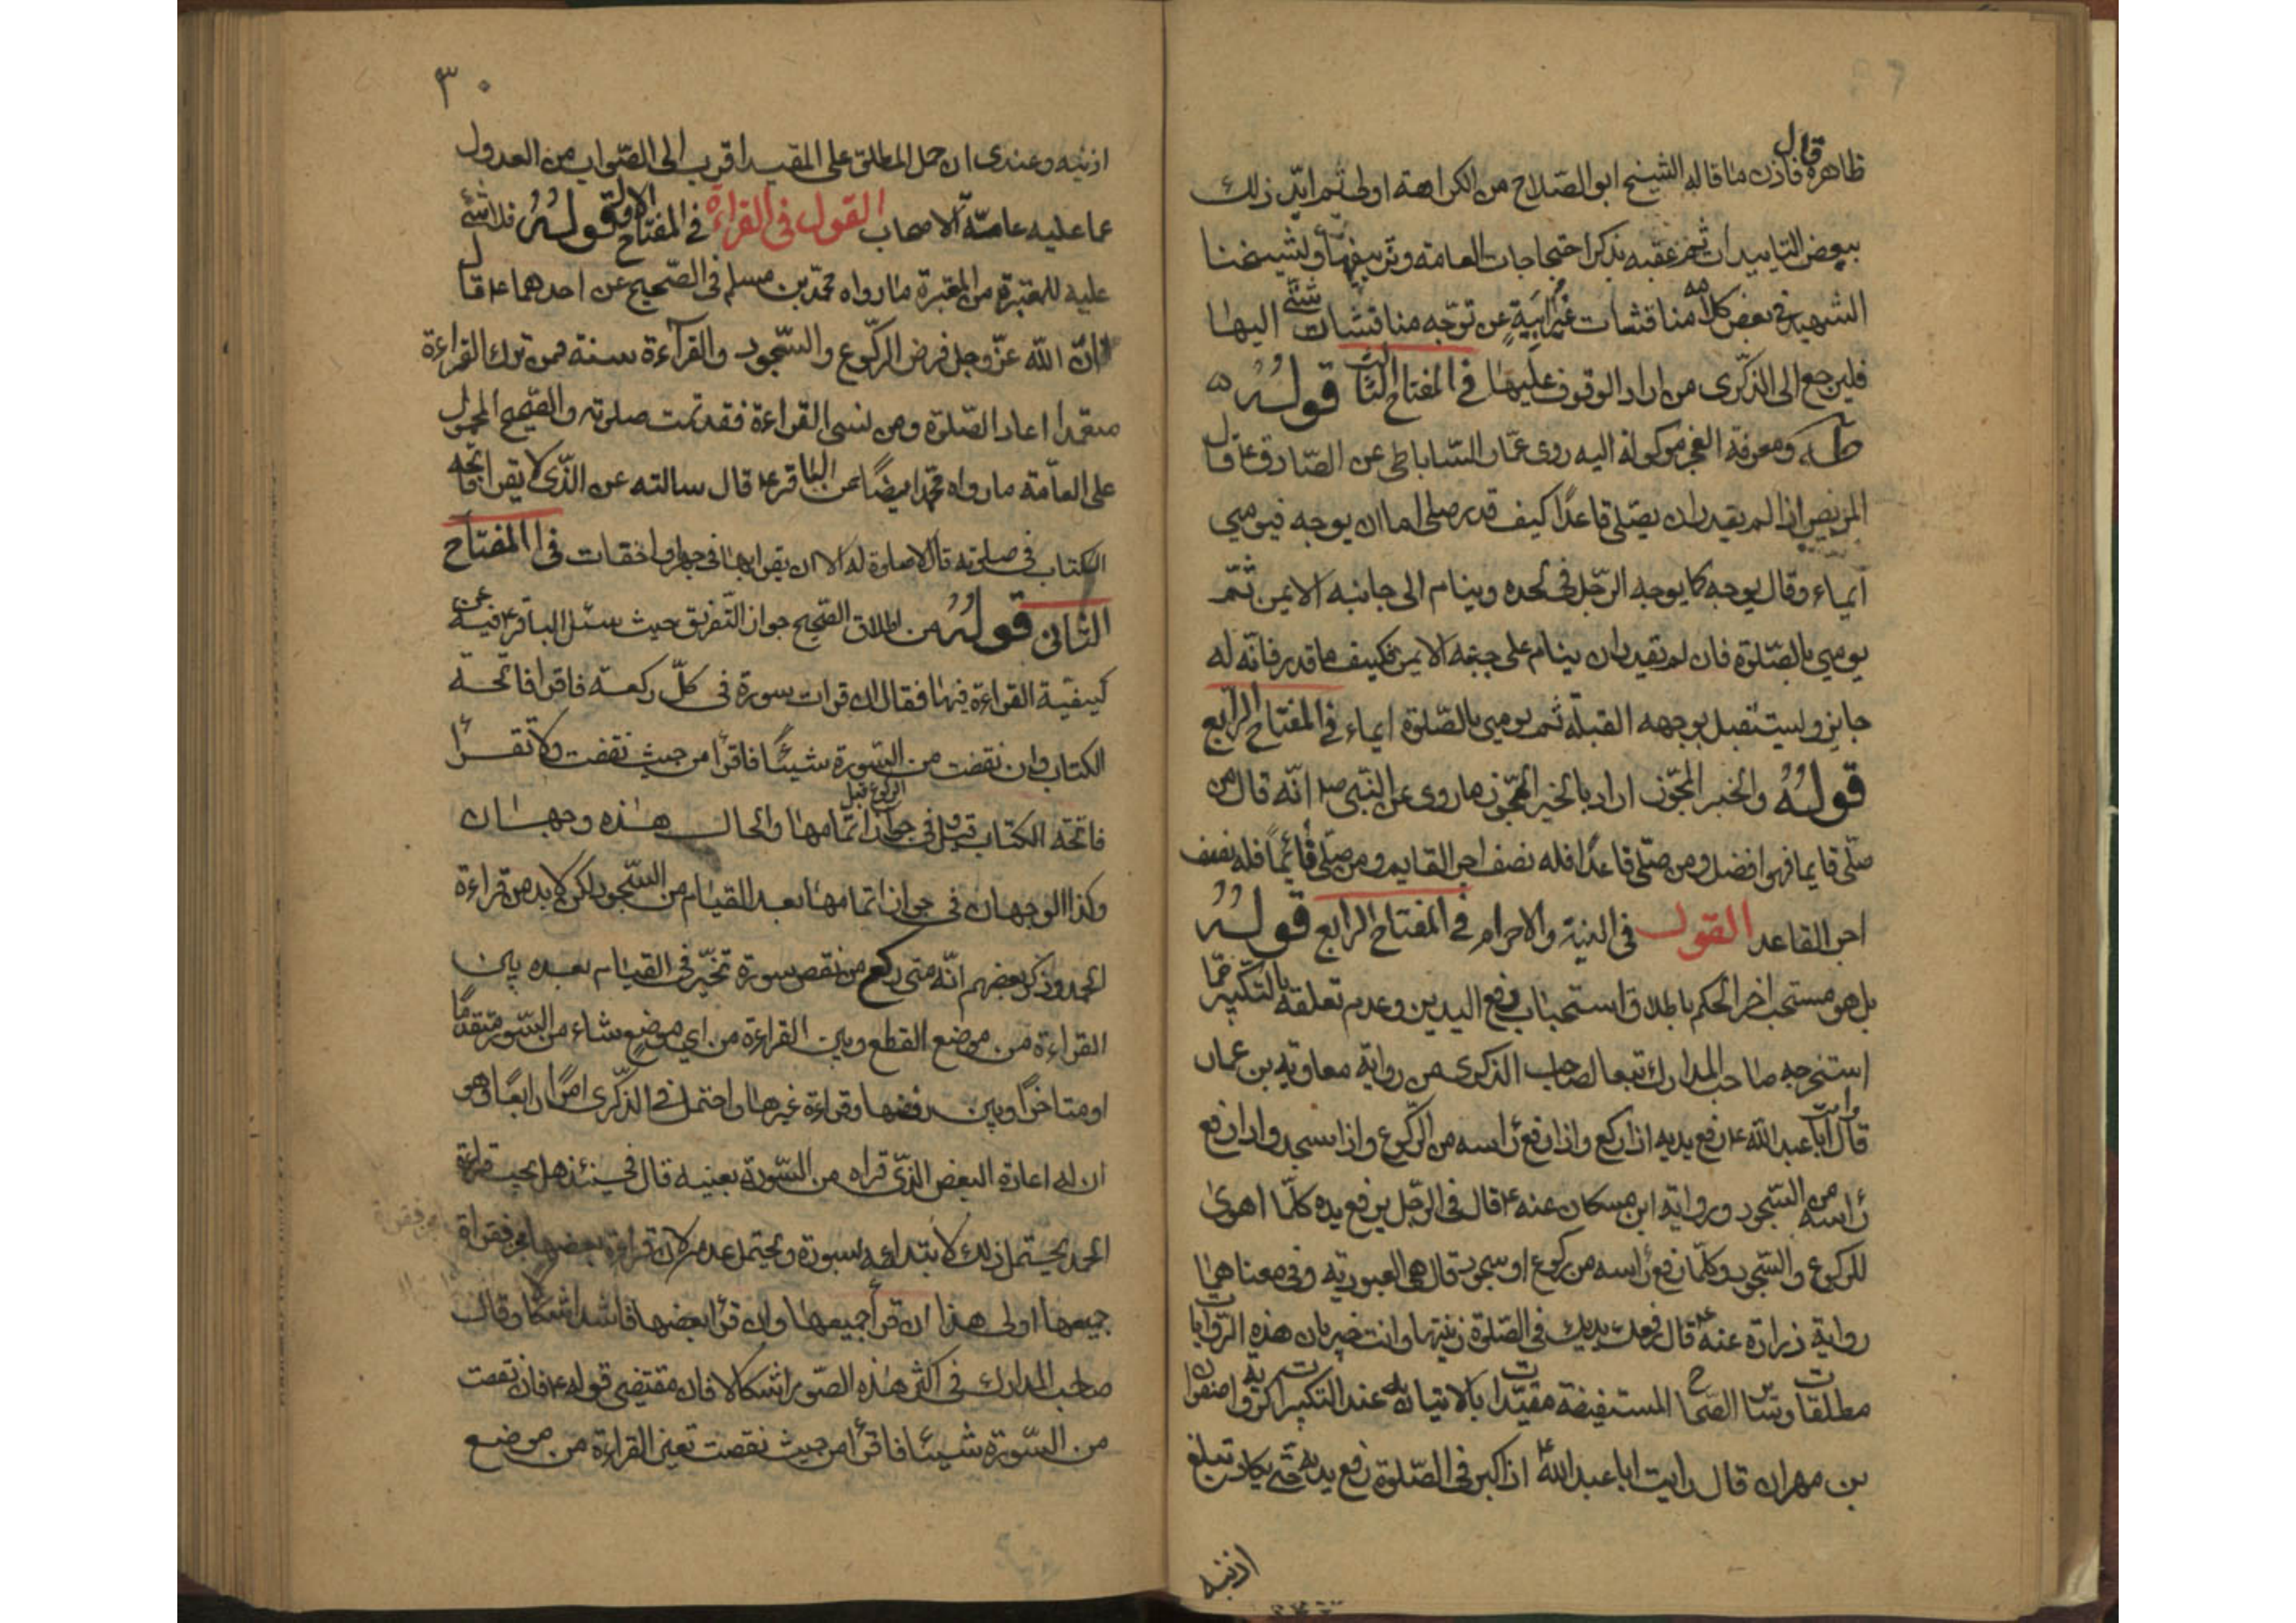 ظاهره قال فاذن ما قاله الشيخ ابو الصلاح من الكراهة اولى ثم ايّد ذلك
ببعض التاييدات ثم عقبه بذكر احتجاجات العامة وتزييفها ولشيخنا
الشهيد في بعض كلامه مناقشات غير ابيةٍ عن توجّه مناقشات شتّى اليها
فليرجع الى الذكرى من اراد الوقوف عليها في المفتاح الثالث قولُهُ
ومعرفة العجز موكولة اليه روى عمّار الساباطى عن الصّادق ع قال
المريض اذا لم يقدر ان يصلّى قاعدًا كيف قدر صلى اما ان يوجه فيومى
ايماء وقال يوجه كما يوجه الرّجل فى لحده وينام الى جانبه الايمن ثمّ
يومى بالصّلوة فان لم يقدر ان ينام على جنبه الايمن فكيف ما قدر فانه له
جايز وليستقبل بوجهه القبلة ثم يومى بالصّلوة ايماء فى المفتاح الرّابع
قولهُ والخبر المجوّز اراد بالخبر المجوّز ما روى عن النّبى ص انّه قال من
صلّى قايما فهو افضل ومن صلّى قاعدًا فله نصف اجر القايم ومن صلّى قائماً فله نصف
اجر القاعد القول فى النية والاحرام فى المفتاح الرابع قولهُ
بل هو مستحب اخر الحكم باطلاق استحباب رفع اليدين وعدم تعلقه بالتكبير ممّا
استخرجه صاحب المدارك تبعا لصاحب الذكرى من رواية معاوية بن عمار
قال رايت ابا عبد الله ع رفع يديه اذا ركع واذا رفع رأسه من الرّكوع واذا سجد واذا رفع
رأسه من السّجود ورواية ابن مسكان عنه ع قال فى الرّجل يرفع يده كلّما اهوى
للركوع والسّجود وكلّما رفع رأسه من ركوع او سجود قال هى العبودية وفى معناهما
رواية زرارة عنه ع قال رفعك يديك فى الصّلوة زينتها وانت خبير بان هذه الرّوايات
مطلقات وساير الصحاح المستفيضة مقيّدة بالاتيان به عند التكبير كرواية صفوان
بن مهران قال رايت ابا عبد الله ع اذا كبر فى الصّلوة رفع يديه حتّى يكاد تبلغ
اذنيه
٣٠
اذنيه وعندى ان حمل المطلق على المقيد اقرب الى الصّواب من العدول
عما عليه عامّة الاصحاب القول فى القراءة فى المفتاح الاول قولهُ فلا شئ
عليه للمعتبرة من المعتبرة ما رواه محمّد بن مسلم فى الصّحيح عن احدهما ع قال
انّ الله عزّ وجل فرض الركوع والسّجود والقراءة سنة فمن ترك القراءة
متعمدا اعاد الصّلوة ومن نسى القراءة فقد تمت صلوته والصّحيح المحمول
على العامّة ما رواه محمّد ايضًا عن الباقر ع قال سالته عن الذّى لا يقرا فاتحة
الكتاب فى صلوته قال لا صلوة له الا ان يقرا بها فى جهر او اخفات فى المفتاح
الثانى قولهُ من اطلاق الصّحيح جواز التّفريق حيث سئل الباقر ع فيه عن
كيفيّة القراءة فيها فقال ان قرات سورة فى كلّ ركعة فاقرا فاتحة
الكتاب وان نقصت من السّورة شيئًا فاقرأ من حيث نقصت ولا تقرأ
فاتحة الكتاب قيل وفى جواز الركوع قبل اتمامها والحال هذه وجهان
وكذا الوجهان فى جواز اتمامها بعد القيام من السّجود لكن لا بد من قراءة
الحمد وذكر بعضهم انّه متى ركع من نقص سورة تخيّر فى القيام بعده بين
القراءة من موضع القطع وبين القراءة من اى موضع شاء من السّورة متقدمًا
او متاخرًا وبين رفضها وقراءة غيرها واحتمل فى الذّكرى امرًا رابعًا وهو
ان له اعادة البعض الذّى قراه من السّورة بعينه قال فحينئذ هل يجب قراءة
الحمد يحتمل ذلك لابتدائه بسورة ويحتمل عدمه لان قراءة بعضها مجز فقراءة
جميعها اولى هذا ان قرأ جميعها وان قرأ بعضها فاشد اشكالا وقال
صاحب المدارك فى اكثر هذه الصّور اشكالا فان مقتضى قوله ع فان نقصت
من السّورة شيئا فاقرأ من حيث نقصت تعين القراءة من موضع